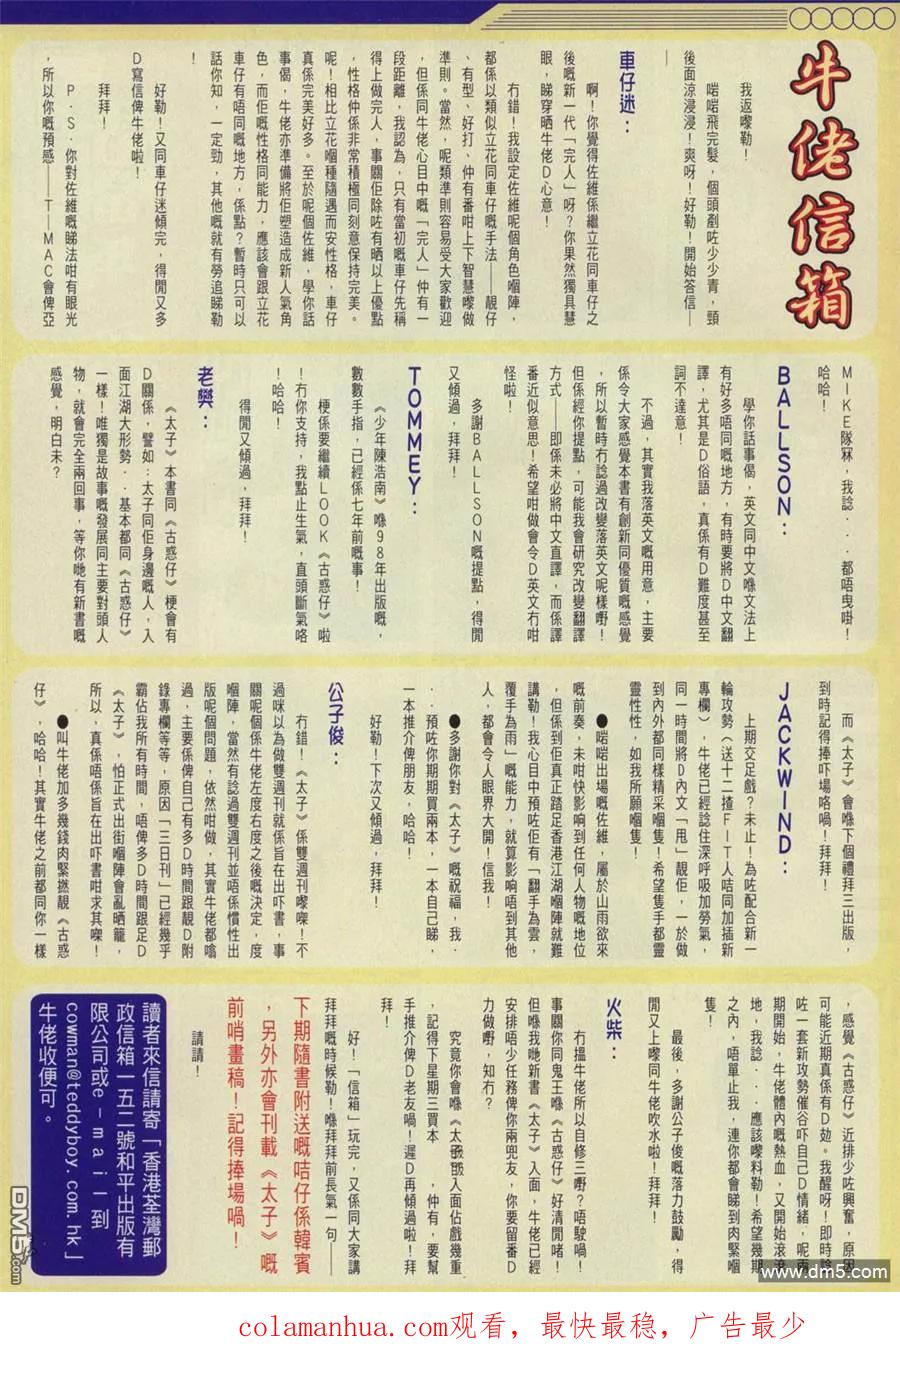 牛佬信箱
我返嚟勒！
啱啱飛完髮，個頭剷咗少少青，頸
後面涼浸浸！爽呀！好勒！開始答信—
—
車仔迷：
啊！你覺得佐維係繼立花同車仔之
後嘅新一代「完人」呀？你果然獨具慧
眼，睇穿晒牛佬D心意！
冇錯！我設定佐維呢個角色嗰陣，
都係以類似立花同車仔嘅手法——靚仔
、有型、好打、仲有番咁上下智慧嚟做
準則。當然，呢類準則容易受大家歡迎
，但係同牛佬心目中嘅「完人」仲有一
段距離，我認為，只有當初嘅車仔先稱
得上做完人，事關佢除咗有晒以上優點
，性格仲係非常積極同刻意保持完美。
呢！相比立花嗰種隨遇而安性格，車仔
真係完美好多。至於呢個佐維，學你話
事偈，牛佬亦準備將佢塑造成新人氣角
色，而佢嘅性格同能力，應該會跟立花
車仔有唔同嘅地方，係點？暫時只可以
話你知，一定勁，其他嘅就有勞追睇勒
！
好勒！又同車仔迷傾完，得閒又多
D寫信俾牛佬啦！
拜拜！
P．S．你對佐維嘅睇法咁有眼光
，所以你嘅預感——T—MAC會俾亞
MIKE隊冧，我諗．．．都唔曳啩！
哈哈！
BALLSON：
學你話事偈，英文同中文喺文法上
有好多唔同嘅地方，有時要將D中文翻
譯，尤其是D俗語，真係有D難度甚至
詞不達意！
不過，其實我落英文嘅用意，主要
係令大家感覺本書有創新同優質嘅感覺
，所以暫時冇諗過改變落英文呢樣嘢！
但係經你提點，可能我會研究改變翻譯
方式——即係未必將中文直譯，而係譯
番近似意思！希望咁做會令D英文冇咁
怪啦！
多謝BALLSON嘅提點，得閒
又傾過，拜拜！
TOMMEY：
《少年陳浩南》喺98年出版嘅，
數數手指，已經係七年前嘅事！
梗係要繼續LOOK《古惑仔》啦
！冇你支持，我點止生氣，直頭斷氣咯
！哈哈！
得閒又傾過，拜拜！
老樊：
《太子》本書同《古惑仔》梗會有
D關係，譬如：太子同佢身邊嘅人，入
面江湖大形勢．．基本都同《古惑仔》
一樣！唯獨是故事嘅發展同主要對頭人
物，就會完全兩回事，等你哋有新書嘅
感覺，明白未？
而《太子》會喺下個禮拜三出版，
到時記得捧吓場咯喎！拜拜！
JACKWIND：
上期交足戲？未止！為咗配合新一
輪攻勢（送十二揸FIT人咭同加插新
專欄），牛佬已經諗住深呼吸加勞氣，
同一時間將D內文「甩」靚佢，一於做
到內外都同樣精采嗰隻！希望隻手都靈
靈性性，如我所願嗰隻！
●啱啱出場嘅佐維，屬於山雨欲來
嘅前奏，未咁快影响到任何人物嘅地位
，但係到佢真正踏足香港江湖嗰陣就難
講勒！我心目中預咗佢有「翻手為雲，
覆手為雨」嘅能力，就算影响唔到其他
人，都會令人眼界大開！信我！
●多謝你對《太子》嘅祝福，我．
．．預咗你期期買兩本，一本自己睇，
一本推介俾朋友，哈哈！
好勒！下次又傾過，拜拜！
公子俊：
冇錯！《太子》係雙週刊嚟㗎！不
過咪以為做雙週刊就係旨在出吓書，事
關呢個係牛佬左度右度之後嘅決定，度
嗰陣，當然有諗過雙週刊並唔係慣性出
版呢個問題，依然咁做，其實牛佬都噏
過，主要係俾自己有多D時間跟靚D附
錄專欄等等，原因「三日刊」已經幾乎
霸佔我所有時間，唔俾多D時間跟足D
《太子》，怕正式出街嗰陣會亂晒籠，
所以，真係唔係旨在出吓書咁求其㗎！
●叫牛佬加多幾錢肉緊撚靚《古惑
仔》，哈哈！其實牛佬之前都同你一樣
，感覺《古惑仔》近排少咗興奮，原因
可能近期真係有D攰。我醒呀！即時諗
咗一套新攻勢催谷吓自己D情緒，呢兩
期開始，牛佬體內嘅熱血，又開始滾滾
地，我諗．．．應該嚟料勒！希望幾期
之內，唔單止我，連你都會睇到肉緊嗰
隻！
最後，多謝公子俊嘅落力鼓勵，得
閒又上嚟同牛佬吹水啦！拜拜！
火柴：
冇搵牛佬所以自修三嘢？唔駛喎！
事關你同鬼王喺《古惑仔》好清閒啫！
但喺我哋新書《太子》入面，牛佬已經
安排唔少任務俾你兩兜友，你要留番D
力做嘢，知冇？
究竟你會喺《太子》入面佔戲幾重
，記得下星期三買本，仲有，要幫
手推介俾D老友喎！遲D再傾過啦！拜
拜！
好！「信箱」玩完，又係同大家講
拜拜嘅時候勒！喺拜拜前長氣一句——
下期隨書附送嘅咭仔係韓賓
，另外亦會刊載《太子》嘅
前哨畫稿！記得捧場喎！
請請！
讀者來信請寄「香港荃灣郵
政信箱一五二號和平出版有
限公司或e－mail到
cowman@teddyboy.com.hk」
牛佬收便可。
DM5.com
www.dm5.com
colamanhua.com观看，最快最稳，广告最少